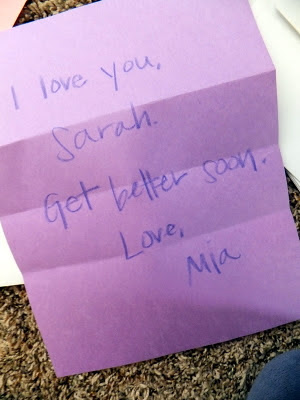 I love you,
Sarah.
Get better soon.
Love,
Mia